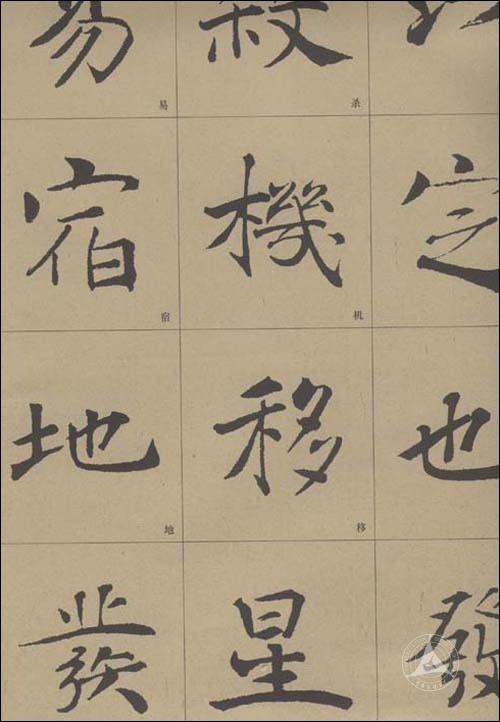 定也發
殺機移星
杀
机
移
易宿地發
易
宿
地